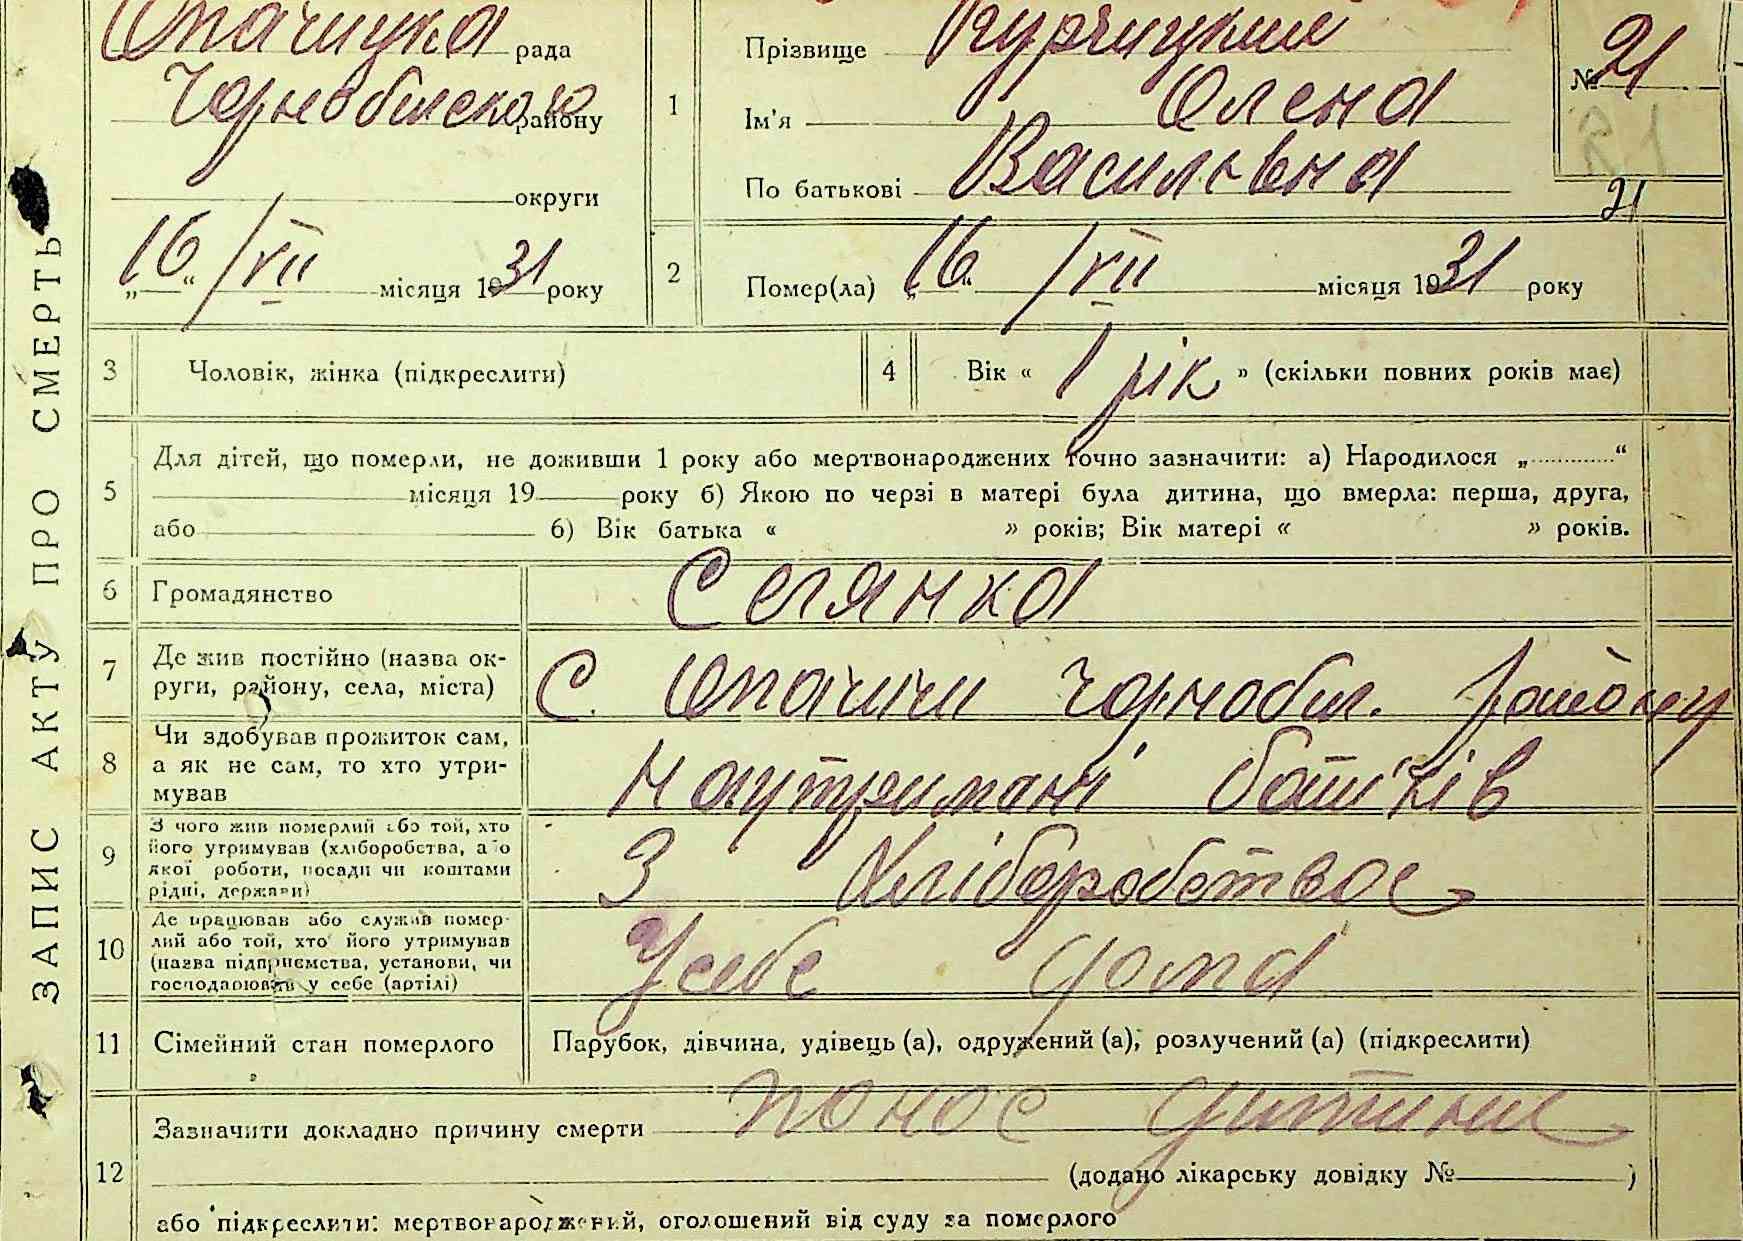 ЗАПИС АКТУ ПРО СМЕРТЬ
Опачицка рада
Чорнобилского району
округи
„16“ /VII місяця 1931 року
1
Прізвище
Ім'я Олена
По батькові Васильвна
№ 21
21
21
2
Помер(ла) „16“ /VII місяця 1931 року
3 Чоловік, жінка (підкреслити)
4 Вік « 1 рік » (скільки повних років має)
5
Для дітей, що померли, не доживши 1 року або мертвонароджених точно зазначити: а) Народилося „ “
місяця 19 року б) Якою по черзі в матері була дитина, що вмерла: перша, друга,
або б) Вік батька « » років; Вік матері « » років.
6 Громадянство Селянка
7
Де жив постійно (назва ок-
руги, району, села, міста)
С. Опачичи Чорнобил. району
8
Чи здобував прожиток сам,
а як не сам, то хто утри-
мував
на утримані батьків
9
З чого жив померлий або той, хто
його утримував (хліборобства, або
якої роботи, посади чи коштами
рідні, держави)
З Хліборобства
10
Де працював або служив помер-
лий або той, хто його утримував
(назва підприємства, установи, чи
господарював у себе (артілі)
У себе дома
11 Сімейний стан померлого Парубок, дівчина, удівець (а), одружений (а), розлучений (а) (підкреслити)
12
Зазначити докладно причину смерти понос дитини
(додано лікарську довідку № )
або підкреслити: мертвонароджений, оголошений від суду за померлого